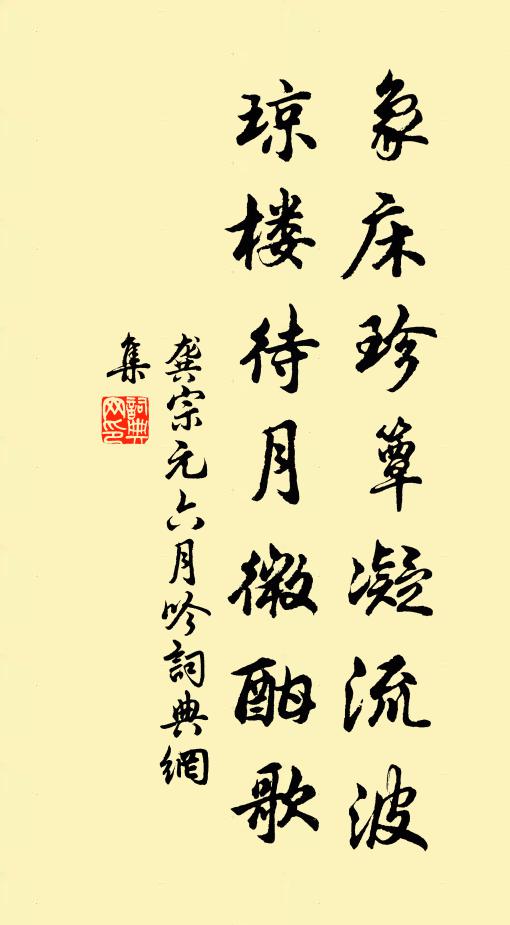 象床珍簟凝流波
琼楼待月微酣歌
龚宗元六月吟詞典網
集
詞典
网印